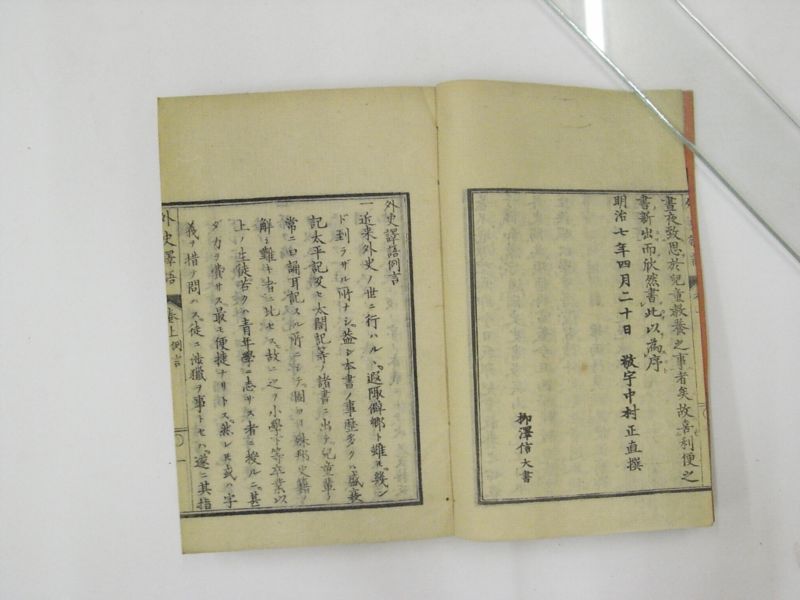 晝夜致思於兒童教養之事者矣故喜利便之
書新出而欣然書此以為序
明治七年四月二十日　敬宇中村正直撰
柳澤信大書
外史譯語例言
一近来外史ノ世ニ行ハルヽ遐陬僻鄉ト雖モ幾ン
ド到ラザル所ナシ蓋シ本書ノ事歷多クハ盛衰
記太平記又ハ太閤記等ノ諸書ニ出テ兒童輩ノ
常ニ口誦耳記スル所ニシテ
解シ難キ者ニ比セス故ニ之ヲ小學下等卒業以
上ノ生徒若クハ青年學ニ志サス者ニ授ルニ甚
ダカヲ費サス最モ便捷ナリトス然レ𪜈或ハ字
義ヲ措テ問ハス徒ニ渉獵ヲ事トセバ遂ニ其指
外史譯語　卷上例言　一